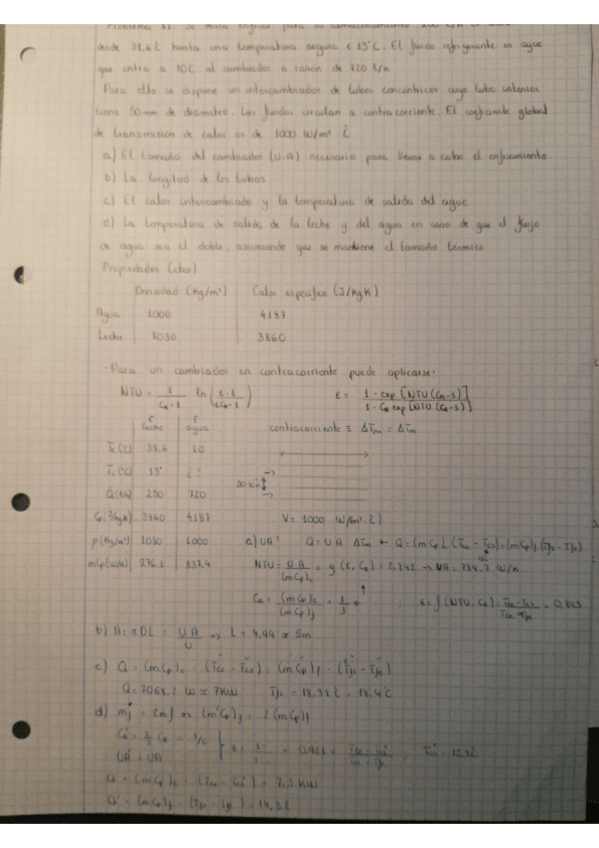 Problema 11. Se desea enfriar para su almacenamiento 250 L/h de leche
desde 38,6 ºC hasta una temperatura segura < 13ºC. El fluido refrigerante es agua
que entra a 10ºC al cambiador a razón de 720 L/h
Para ello se dispone un intercambiador de tubos concéntricos cuyo tubo interior
tiene 50mm de diámetro. Los fluidos circulan a contracorriente. El coeficiente global
de transmisión de calor es de 1000 W/m² ºC
a) El tamaño del cambiador (U·A) necesario para llevar a cabo el enfriamiento
b) La longitud de los tubos
c) El calor intercambiado y la temperatura de salida del agua
d) La temperatura de salida de la leche y del agua en caso de que el flujo
de agua sea el doble, asumiendo que se mantiene el tamaño térmico
Propiedades (ctes)
Densidad (Kg/m³) Calor específico (J/KgK)
Agua 1000 4187
Leche 1030 3860
·Para un cambiador en contracorriente puede aplicarse:
NTU = 1/(CR-1) ln((ε-1)/(εCR-1)) ε = (1-exp[NTU(CR-1)])/(1-CR exp[NTU(CR-1)])
C F
leche agua contracorriente ≡
Te (ºC) 38,6 10
Ts (ºC) 13 ¿?
Q (L/h) 250 720 50
Cp (J/KgK) 3860 4187 U = 1000 W/m² ºC
ρ (Kg/m³) 1030 1000 a) UA? Q = UA ΔTm ← Q = (mCp)c (Tce - Tcs) = (mCp)f (Tfs - Tfe)
mCp (W/K) 276,1 837,4
NTU = UA/(mCp)c = g(ε, CR) = 2,842 → UA = 784,7 W/K
CR = (mCp)c/(mCp)f = 1/3 , ε = f(NTU, CR) = (Tce-Tcs)/(Tce-Tfe) = 0,895
b) A = πDL = UA/U → L = 4,99 ≈ 5m
c) Q = (mCp)c · (Tce - Tcs) = (mCp)f · (Tfs - Tfe)
Q = 7068,2 W ≃ 7KW Tfs = 18,38ºC = 18,4ºC
d) mf = 2mf ⇒ (mCp)f = 2(mCp)f
CR = ½ CR = 1/6
UA = UA
ε = = 0,921 =
Q = (mCp)c = (Tce - Tcs) = 7,3 KW
Q = (mCp)f · (Tfs - Tfe) = 14,3ºC